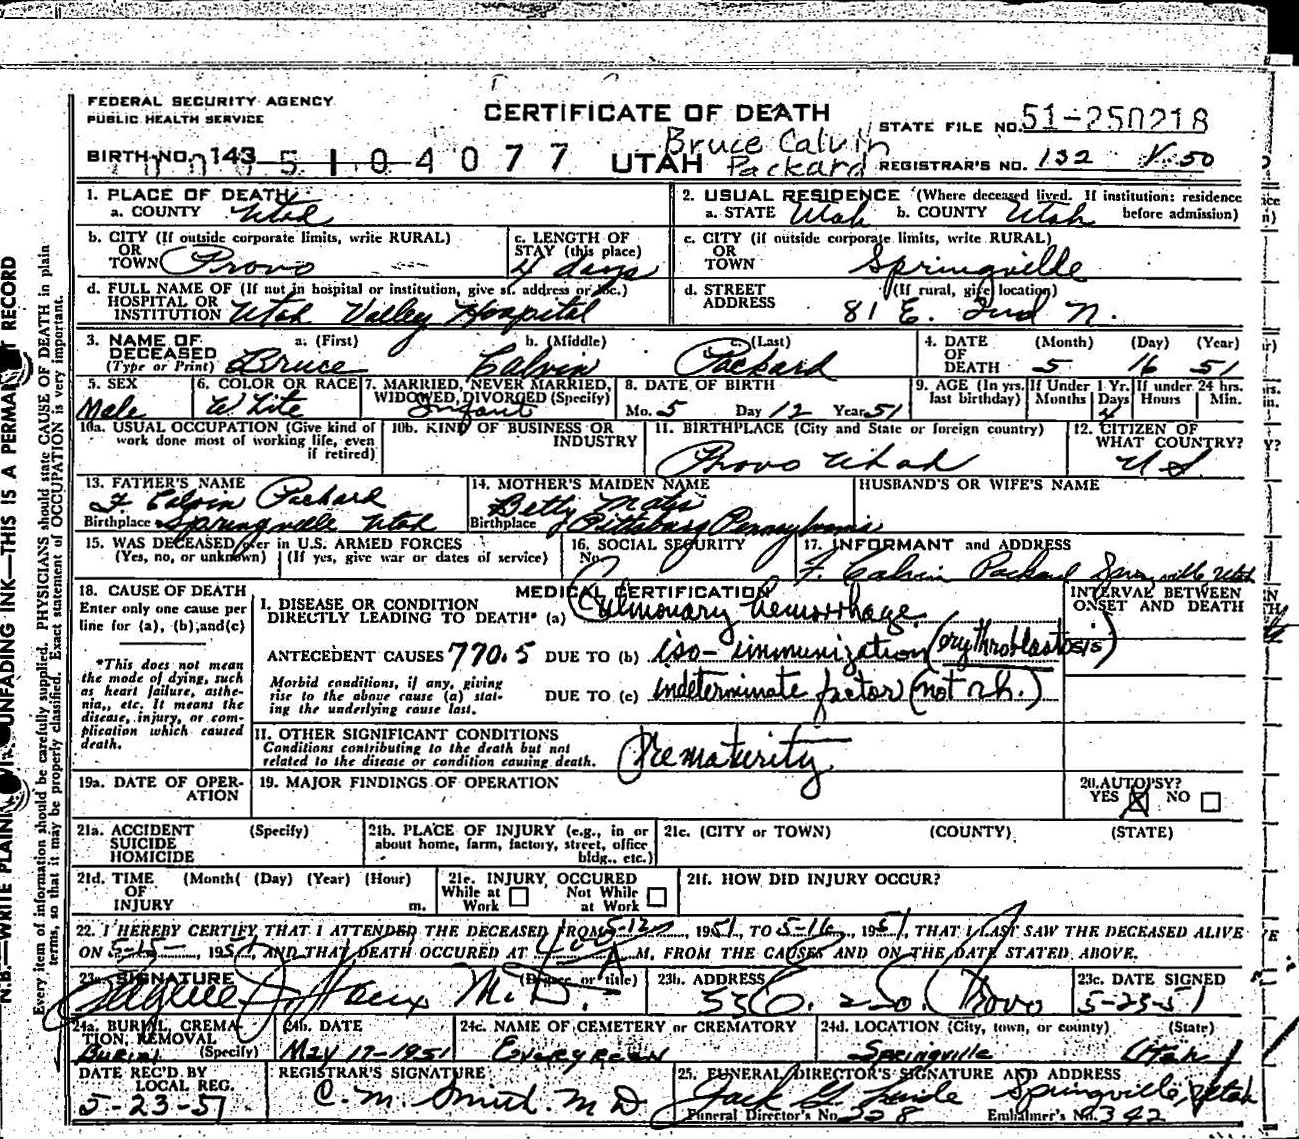 FEDERAL SECURITY AGENCY
PUBLIC HEALTH SERVICE
CERTIFICATE OF DEATH
STATE FILE NO. 51-250218
BIRTH NO. 143 5104077
UTAH
Bruce Calvin
Packard
REGISTRAR'S NO. 132 50
1. PLACE OF DEATH
a. COUNTY Utah
2. USUAL RESIDENCE (Where deceased lived. If institution: residence
a. STATE Utah b. COUNTY Utah before admission)
b. CITY (If outside corporate limits, write RURAL)
OR
TOWN Provo
c. LENGTH OF
STAY (this place)
4 days
c. CITY (if outside corporate limits, write RURAL)
OR
TOWN Springville
d. FULL NAME OF (If not in hospital or institution, give st. address or loc.)
HOSPITAL OR
INSTITUTION Utah Valley Hospital
d. STREET (If rural, give location)
ADDRESS 81 E. 2nd N.
3. NAME OF DECEASED (Type or Print)
a. (First) b. (Middle) c. (Last)
Bruce Calvin Packard
4. DATE OF DEATH (Month) (Day) (Year)
5 16 51
5. SEX
Male
6. COLOR OR RACE
White
7. MARRIED, NEVER MARRIED,
WIDOWED, DIVORCED (Specify)
Infant
8. DATE OF BIRTH
Mo. 5 Day 12 Year 51
9. AGE (In yrs. last birthday)
If Under 1 Yr. Months Days
4
If under 24 hrs. Hours Min.
10a. USUAL OCCUPATION (Give kind of
work done most of working life, even
if retired)
10b. KIND OF BUSINESS OR
INDUSTRY
11. BIRTHPLACE (City and State or foreign country)
Provo Utah
12. CITIZEN OF
WHAT COUNTRY?
U S
13. FATHER'S NAME
F Calvin Packard
Birthplace Springville Utah
14. MOTHER'S MAIDEN NAME
Betty
Birthplace Pittsburg Pennsylvania
HUSBAND'S OR WIFE'S NAME
15. WAS DECEASED ever in U.S. ARMED FORCES
(Yes, no, or unknown) (If yes, give war or dates of service)
16. SOCIAL SECURITY
No.
17. INFORMANT and ADDRESS
F. Calvin Packard Springville, Utah
18. CAUSE OF DEATH
Enter only one cause per
line for (a), (b), and (c)
*This does not mean
the mode of dying, such
as heart failure, asthe-
nia, etc. It means the
disease, injury, or com-
plication which caused
death.
MEDICAL CERTIFICATION
INTERVAL BETWEEN
ONSET AND DEATH
I. DISEASE OR CONDITION
DIRECTLY LEADING TO DEATH* (a) Pulmonary hemorrhage
ANTECEDENT CAUSES 770.5 DUE TO (b) iso-immunization (erythroblastosis)
Morbid conditions, if any, giving
rise to the above cause (a) stat-
ing the underlying cause last.
DUE TO (c) indeterminate factor (not r.h.)
II. OTHER SIGNIFICANT CONDITIONS
Conditions contributing to the death but not
related to the disease or condition causing death.
Prematurity
19a. DATE OF OPER-
ATION
19. MAJOR FINDINGS OF OPERATION
20. AUTOPSY?
YES X NO
21a. ACCIDENT (Specify)
SUICIDE
HOMICIDE
21b. PLACE OF INJURY (e.g., in or
about home, farm, factory, street, office
bldg., etc.)
21c. (CITY or TOWN) (COUNTY) (STATE)
21d. TIME (Month) (Day) (Year) (Hour)
OF
INJURY m.
21e. INJURY OCCURED
While at Work Not While at Work
21f. HOW DID INJURY OCCUR?
22. I HEREBY CERTIFY THAT I ATTENDED THE DECEASED FROM 5-12, 1951, TO 5-16, 1951, THAT I LAST SAW THE DECEASED ALIVE
ON 5-15, 1951, AND THAT DEATH OCCURED AT 4 A M, FROM THE CAUSES AND ON THE DATE STATED ABOVE.
23a. SIGNATURE (Degree or title)
M.D.
23b. ADDRESS
Provo
23c. DATE SIGNED
5-23-51
24a. BURIAL, CREMA-
TION, REMOVAL
(Specify)
Burial
24b. DATE
May 17-1951
24c. NAME OF CEMETERY or CREMATORY
Evergreen
24d. LOCATION (City, town, or county) (State)
Springville Utah
DATE REC'D BY
LOCAL REG.
5-23-51
REGISTRAR'S SIGNATURE
C. M. Smith. M D
25. FUNERAL DIRECTOR'S SIGNATURE AND ADDRESS
Jack Springville, Utah
Funeral Director's No. 328 Embalmer's No. 342
N.B.—WRITE PLAINLY UNFADING INK—THIS IS A PERMANENT RECORD
Every item of information should be carefully supplied. PHYSICIANS should state CAUSE OF DEATH in plain
terms, so that it may be properly classified. Exact statement of OCCUPATION is very important.